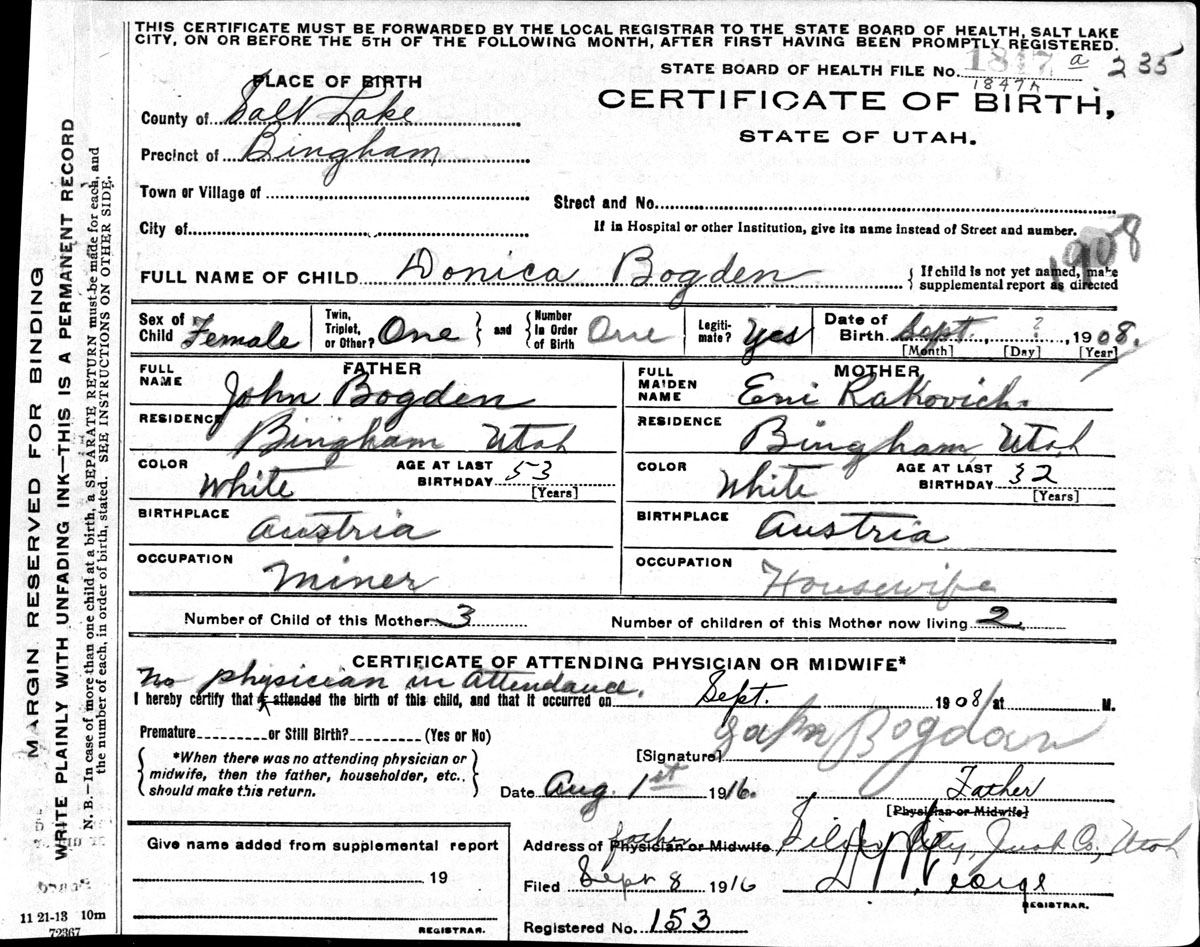 THIS CERTIFICATE MUST BE FORWARDED BY THE LOCAL REGISTRAR TO THE STATE BOARD OF HEALTH, SALT LAKE
CITY, ON OR BEFORE THE 5TH OF THE FOLLOWING MONTH, AFTER FIRST HAVING BEEN PROMPTLY REGISTERED.
STATE BOARD OF HEALTH FILE No. 1847 a 235
1847h
PLACE OF BIRTH
CERTIFICATE OF BIRTH,
STATE OF UTAH.
County of Salt Lake
Precinct of Bingham
Town or Village of
Street and No.
City of
If in Hospital or other Institution, give its name instead of Street and number.
1908
FULL NAME OF CHILD Donica Bogden { If child is not yet named, make supplemental report as directed
Sex of Child Female
Twin, Triplet, or Other? One } and { Number In Order of Birth One
Legiti-mate? Yes
Date of Birth Sept. , ? , 1908.
[Month] [Day] [Year]
FATHER
FULL NAME John Bogden
RESIDENCE Bingham Utah
COLOR White AGE AT LAST BIRTHDAY 53 [Years]
BIRTHPLACE Austria
OCCUPATION Miner
MOTHER
FULL MAIDEN NAME Emi Rakovich
RESIDENCE Bingham, Utah
COLOR White AGE AT LAST BIRTHDAY 32 [Years]
BIRTHPLACE Austria
OCCUPATION Housewife
Number of Child of this Mother 3 Number of children of this Mother now living 2
CERTIFICATE OF ATTENDING PHYSICIAN OR MIDWIFE*
No physician in Attendance.
I hereby certify that I attended the birth of this child, and that it occurred on Sept. 1908 at M.
Premature or Still Birth? (Yes or No)
John Bogdan
[Signature]
{ *When there was no attending physician or midwife, then the father, householder, etc., should make this return. }
Date Aug. 1st 1916. Father
[Physician or Midwife]
Give name added from supplemental report
19
REGISTRAR.
Address of father Physician or Midwife Silver City, Juab Co., Utah
Filed Sept 8 1916 George
REGISTRAR.
Registered No. 153
MARGIN RESERVED FOR BINDING
WRITE PLAINLY WITH UNFADING INK—THIS IS A PERMANENT RECORD
N. B.—In case of more than one child at a birth, a SEPARATE RETURN must be made for each, and
the number of each, in order of birth, stated. SEE INSTRUCTIONS ON OTHER SIDE.
11 21-13 10m
72367